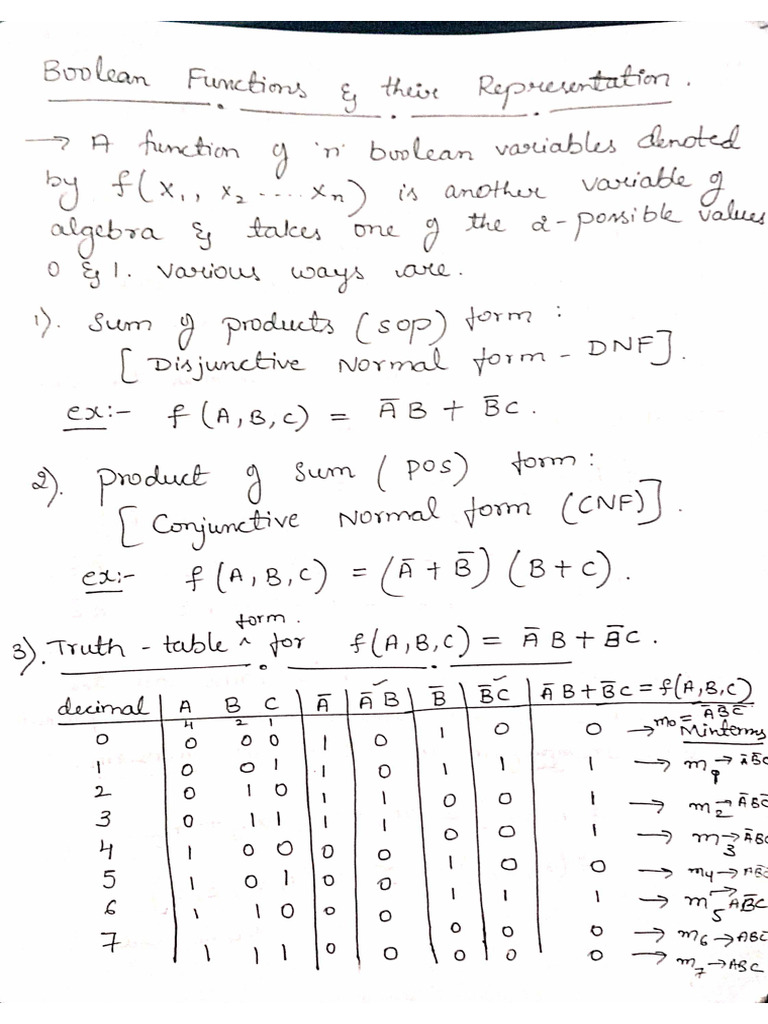 Boolean Functions & their Representation.
→ A function of 'n' boolean variables denoted
by f(x₁, x₂ ..... xₙ) is another variable of
algebra & takes one of the 2-possible values
0 & 1. various ways are.
1). Sum of products (SOP) form :
[Disjunctive Normal form - DNF].
ex:- f(A,B,C) = A̅B + B̅C.
2). Product of Sum (POS) form :
[Conjunctive Normal form (CNF)].
ex:- f(A,B,C) = (A̅ + B̅) (B + C).
3). Truth - table ^ form. for f(A,B,C) = A̅B + B̅C.
decimal | A B C | A̅ | A̅B | B̅ | B̅C | A̅B + B̅C = f(A,B,C)
4 2 1 m₀ = A̅B̅C̅
0 0 0 0 1 0 1 0 0 → Minterms
1 0 0 1 1 0 1 1 1 → m₁ → A̅B̅C
2 0 1 0 1 1 0 0 1 → m₂ → A̅BC̅
3 0 1 1 1 1 0 0 1 → m₃ → A̅BC
4 1 0 0 0 0 1 0 0 → m₄ → AB̅C̅
5 1 0 1 0 0 1 1 1 → m₅ → AB̅C
6 1 1 0 0 0 0 0 0 → m₆ → ABC̅
7 1 1 1 0 0 0 0 0 → m₇ → ABC